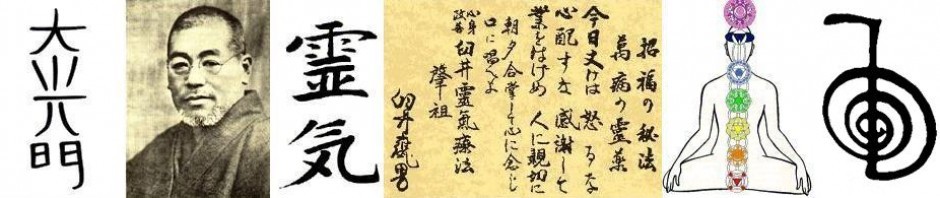 大光明
霊気
招福の秘法
萬病の霊薬
今日丈けは 怒るな
心配すな 感謝して
業をはげめ 人に親切に
朝夕合掌して心に念じ
口に唱へよ
心身改善 臼井靈氣療法
肇祖
臼井甕男